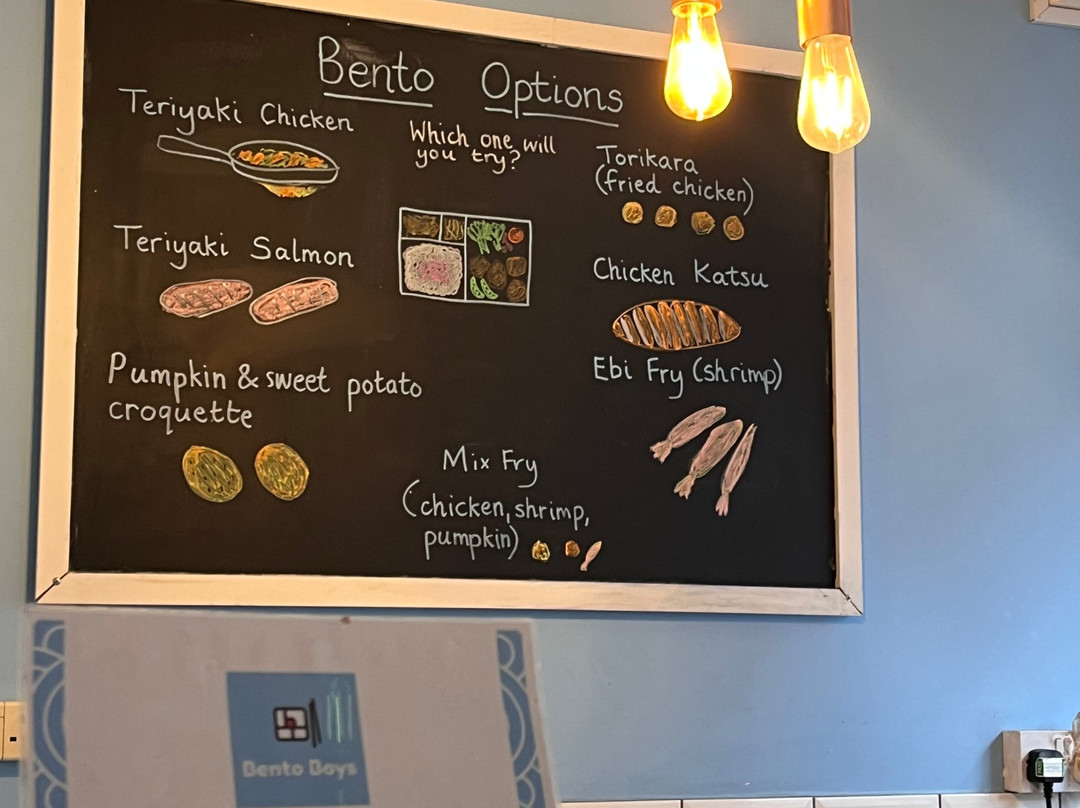 Bento Options
Teriyaki Chicken
Which one will
you try?
Torikara
(fried chicken)
Teriyaki Salmon
Chicken Katsu
Pumpkin & sweet potato
croquette
Ebi Fry (shrimp)
Mix Fry
(chicken, shrimp,
pumpkin)
Bento Boys